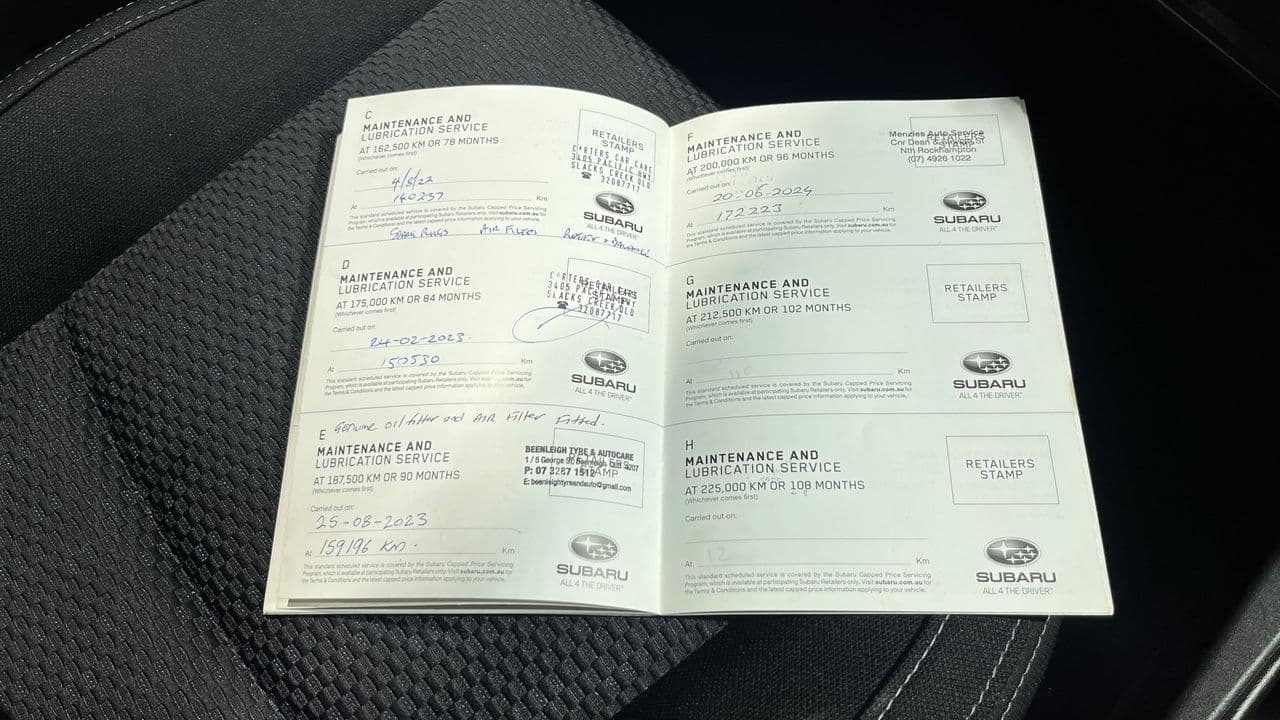 C
MAINTENANCE AND
LUBRICATION SERVICE
AT 162,500 KM OR 78 MONTHS
(Whichever comes first)
Carried out on:
4/5/22
At 140237 Km
This standard scheduled service is covered by the Subaru Capped Price Servicing
Program, which is available at participating Subaru Retailers only. Visit subaru.com.au for
the Terms & Conditions and the latest capped price information applying to your vehicle.
RETAILERS
STAMP
CARTERS CAR CARE
3405 PACIFIC HWY
SLACKS CREEK QLD
☎ 32087717
SUBARU
ALL 4 THE DRIVER™
SPARK PLUGS AIR FILTER ROTATE + BALANCE
D
MAINTENANCE AND
LUBRICATION SERVICE
AT 175,000 KM OR 84 MONTHS
(Whichever comes first)
Carried out on:
24-02-2023.
At 150530 Km
This standard scheduled service is covered by the Subaru Capped Price Servicing
Program, which is available at participating Subaru Retailers only. Visit subaru.com.au for
the Terms & Conditions and the latest capped price information applying to your vehicle.
RETAILERS
STAMP
CARTERS CAR CARE
3405 PACIFIC HWY
SLACKS CREEK QLD
☎ 32087717
SUBARU
ALL 4 THE DRIVER™
Genuine oil filter and AIR Filter Fitted.
E
MAINTENANCE AND
LUBRICATION SERVICE
AT 187,500 KM OR 90 MONTHS
(Whichever comes first)
Carried out on:
25-08-2023
At 159196 KM. Km
This standard scheduled service is covered by the Subaru Capped Price Servicing
Program, which is available at participating Subaru Retailers only. Visit subaru.com.au for
the Terms & Conditions and the latest capped price information applying to your vehicle.
RETAILERS
STAMP
BEENLEIGH TYRE & AUTOCARE
1/5 George St, Beenleigh QLD 4207
P: 07 3287 1512
E: beenleightyreandauto@gmail.com
SUBARU
ALL 4 THE DRIVER™
F
MAINTENANCE AND
LUBRICATION SERVICE
AT 200,000 KM OR 96 MONTHS
(Whichever comes first)
Carried out on:
20-06-2024
At 172223 Km
This standard scheduled service is covered by the Subaru Capped Price Servicing
Program, which is available at participating Subaru Retailers only. Visit subaru.com.au for
the Terms & Conditions and the latest capped price information applying to your vehicle.
RETAILERS
STAMP
Menzies Auto Service
Cnr Dean & St
Nth Rockhampton
(07) 4926 1022
SUBARU
ALL 4 THE DRIVER™
G
MAINTENANCE AND
LUBRICATION SERVICE
AT 212,500 KM OR 102 MONTHS
(Whichever comes first)
Carried out on:
At Km
This standard scheduled service is covered by the Subaru Capped Price Servicing
Program, which is available at participating Subaru Retailers only. Visit subaru.com.au for
the Terms & Conditions and the latest capped price information applying to your vehicle.
RETAILERS
STAMP
SUBARU
ALL 4 THE DRIVER™
H
MAINTENANCE AND
LUBRICATION SERVICE
AT 225,000 KM OR 108 MONTHS
(Whichever comes first)
Carried out on:
At Km
This standard scheduled service is covered by the Subaru Capped Price Servicing
Program, which is available at participating Subaru Retailers only. Visit subaru.com.au for
the Terms & Conditions and the latest capped price information applying to your vehicle.
RETAILERS
STAMP
SUBARU
ALL 4 THE DRIVER™